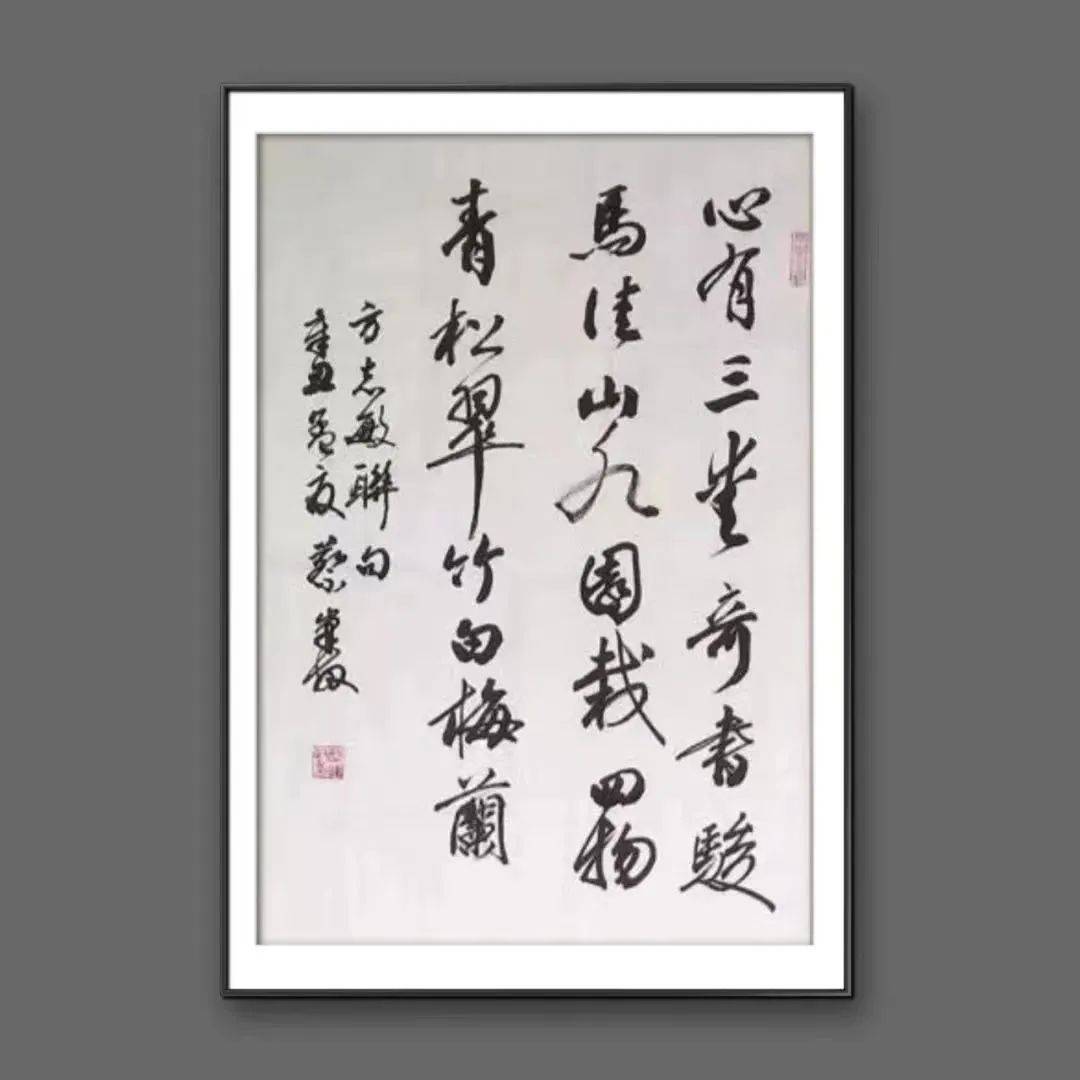 心有三愛奇書駿
馬佳山水園栽四物
青松翠竹白梅蘭
方志敏聯句
辛丑孟夏蔡